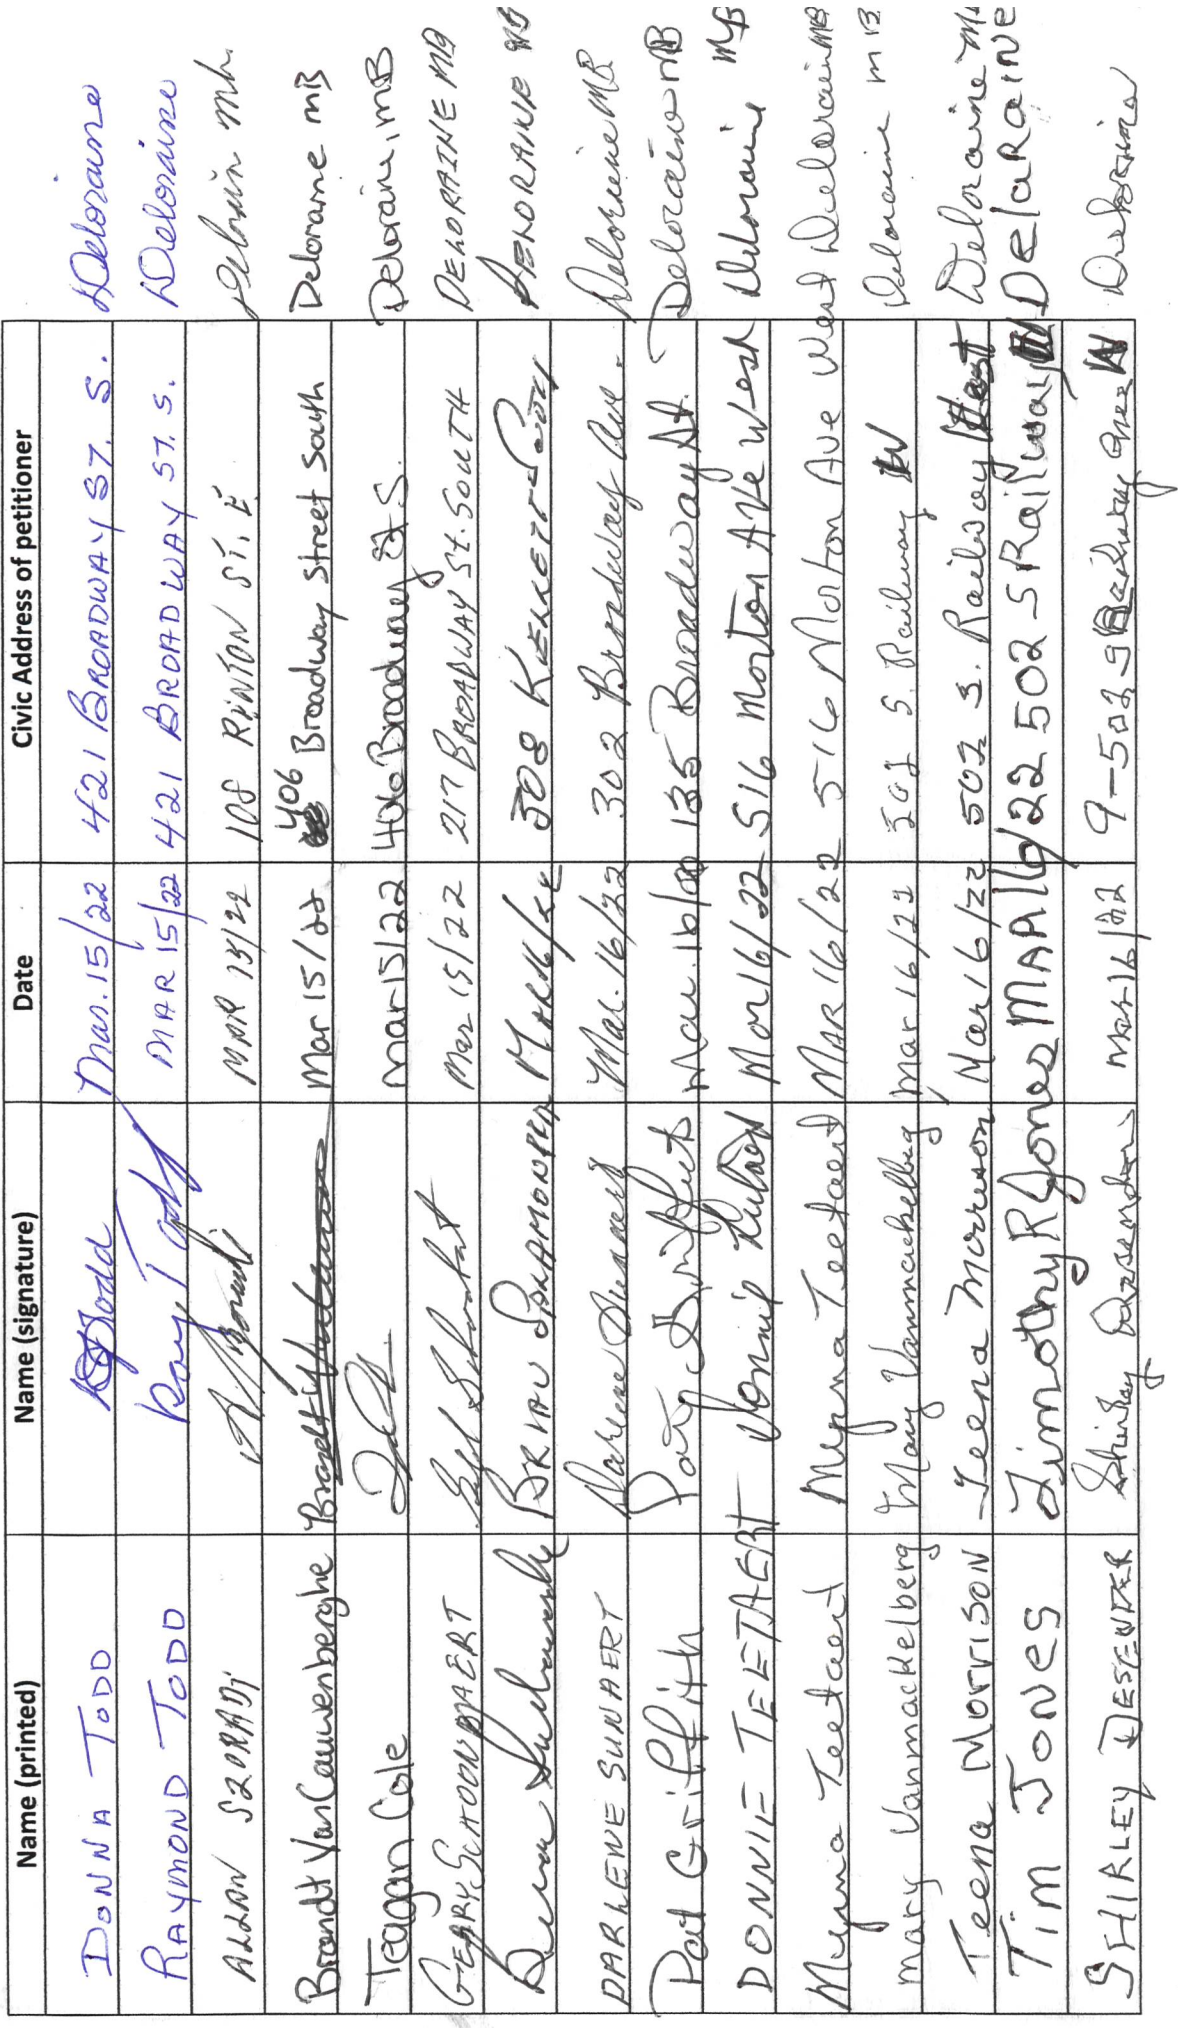 Name (printed) Name (signature) Date Civic Address of petitioner
DONNA TODD DTodd Mar. 15/22 421 BROADWAY ST. S. Deloraine
RAYMOND TODD Ray Todd MAR 15/22 421 BROADWAY ST. S. Deloraine
ALLAN SZORADJ MAR 15/22 108 RENTON ST. E
Brandt VanCauwenberghe Brandt Mar 15/22 406 Broadway Street South Deloraine MB
Teagan Cole mar 15/22 406 Broadway St. S. Deloraine, MB
GEARY SCHOONBAERT Mar 15/22 217 BROADWAY St. SOUTH DELORAINE MB
BRIAN 508 DELORAINE MB
DARLENE SUNAERT Darlene Sunaert Mar. 16/22 302 Broadway Ave. Deloraine MB
Pat Griffith Pat Griffith Mar. 16/22 135 Broadway St. Deloraine MB
DONNIE TEETAERT Mar 16/22 516 Morton Ave West Deloraine MB
Myrna Teetaert Myrna Teetaert MAR 16/22 516 Morton Ave West Deloraine MB
Mary Vanmackelberg Mary Vanmackelberg Mar 16/22 S. Railway W Deloraine MB
Teena Morrison Teena Morrison Mar 16/22 502 S. Railway Deloraine
Tim Jones Timothy R Jones MAR 16/22 502 S Railway W DelaRaine
SHIRLEY DESENDER Shirley Mar 16/22 9-502 S W